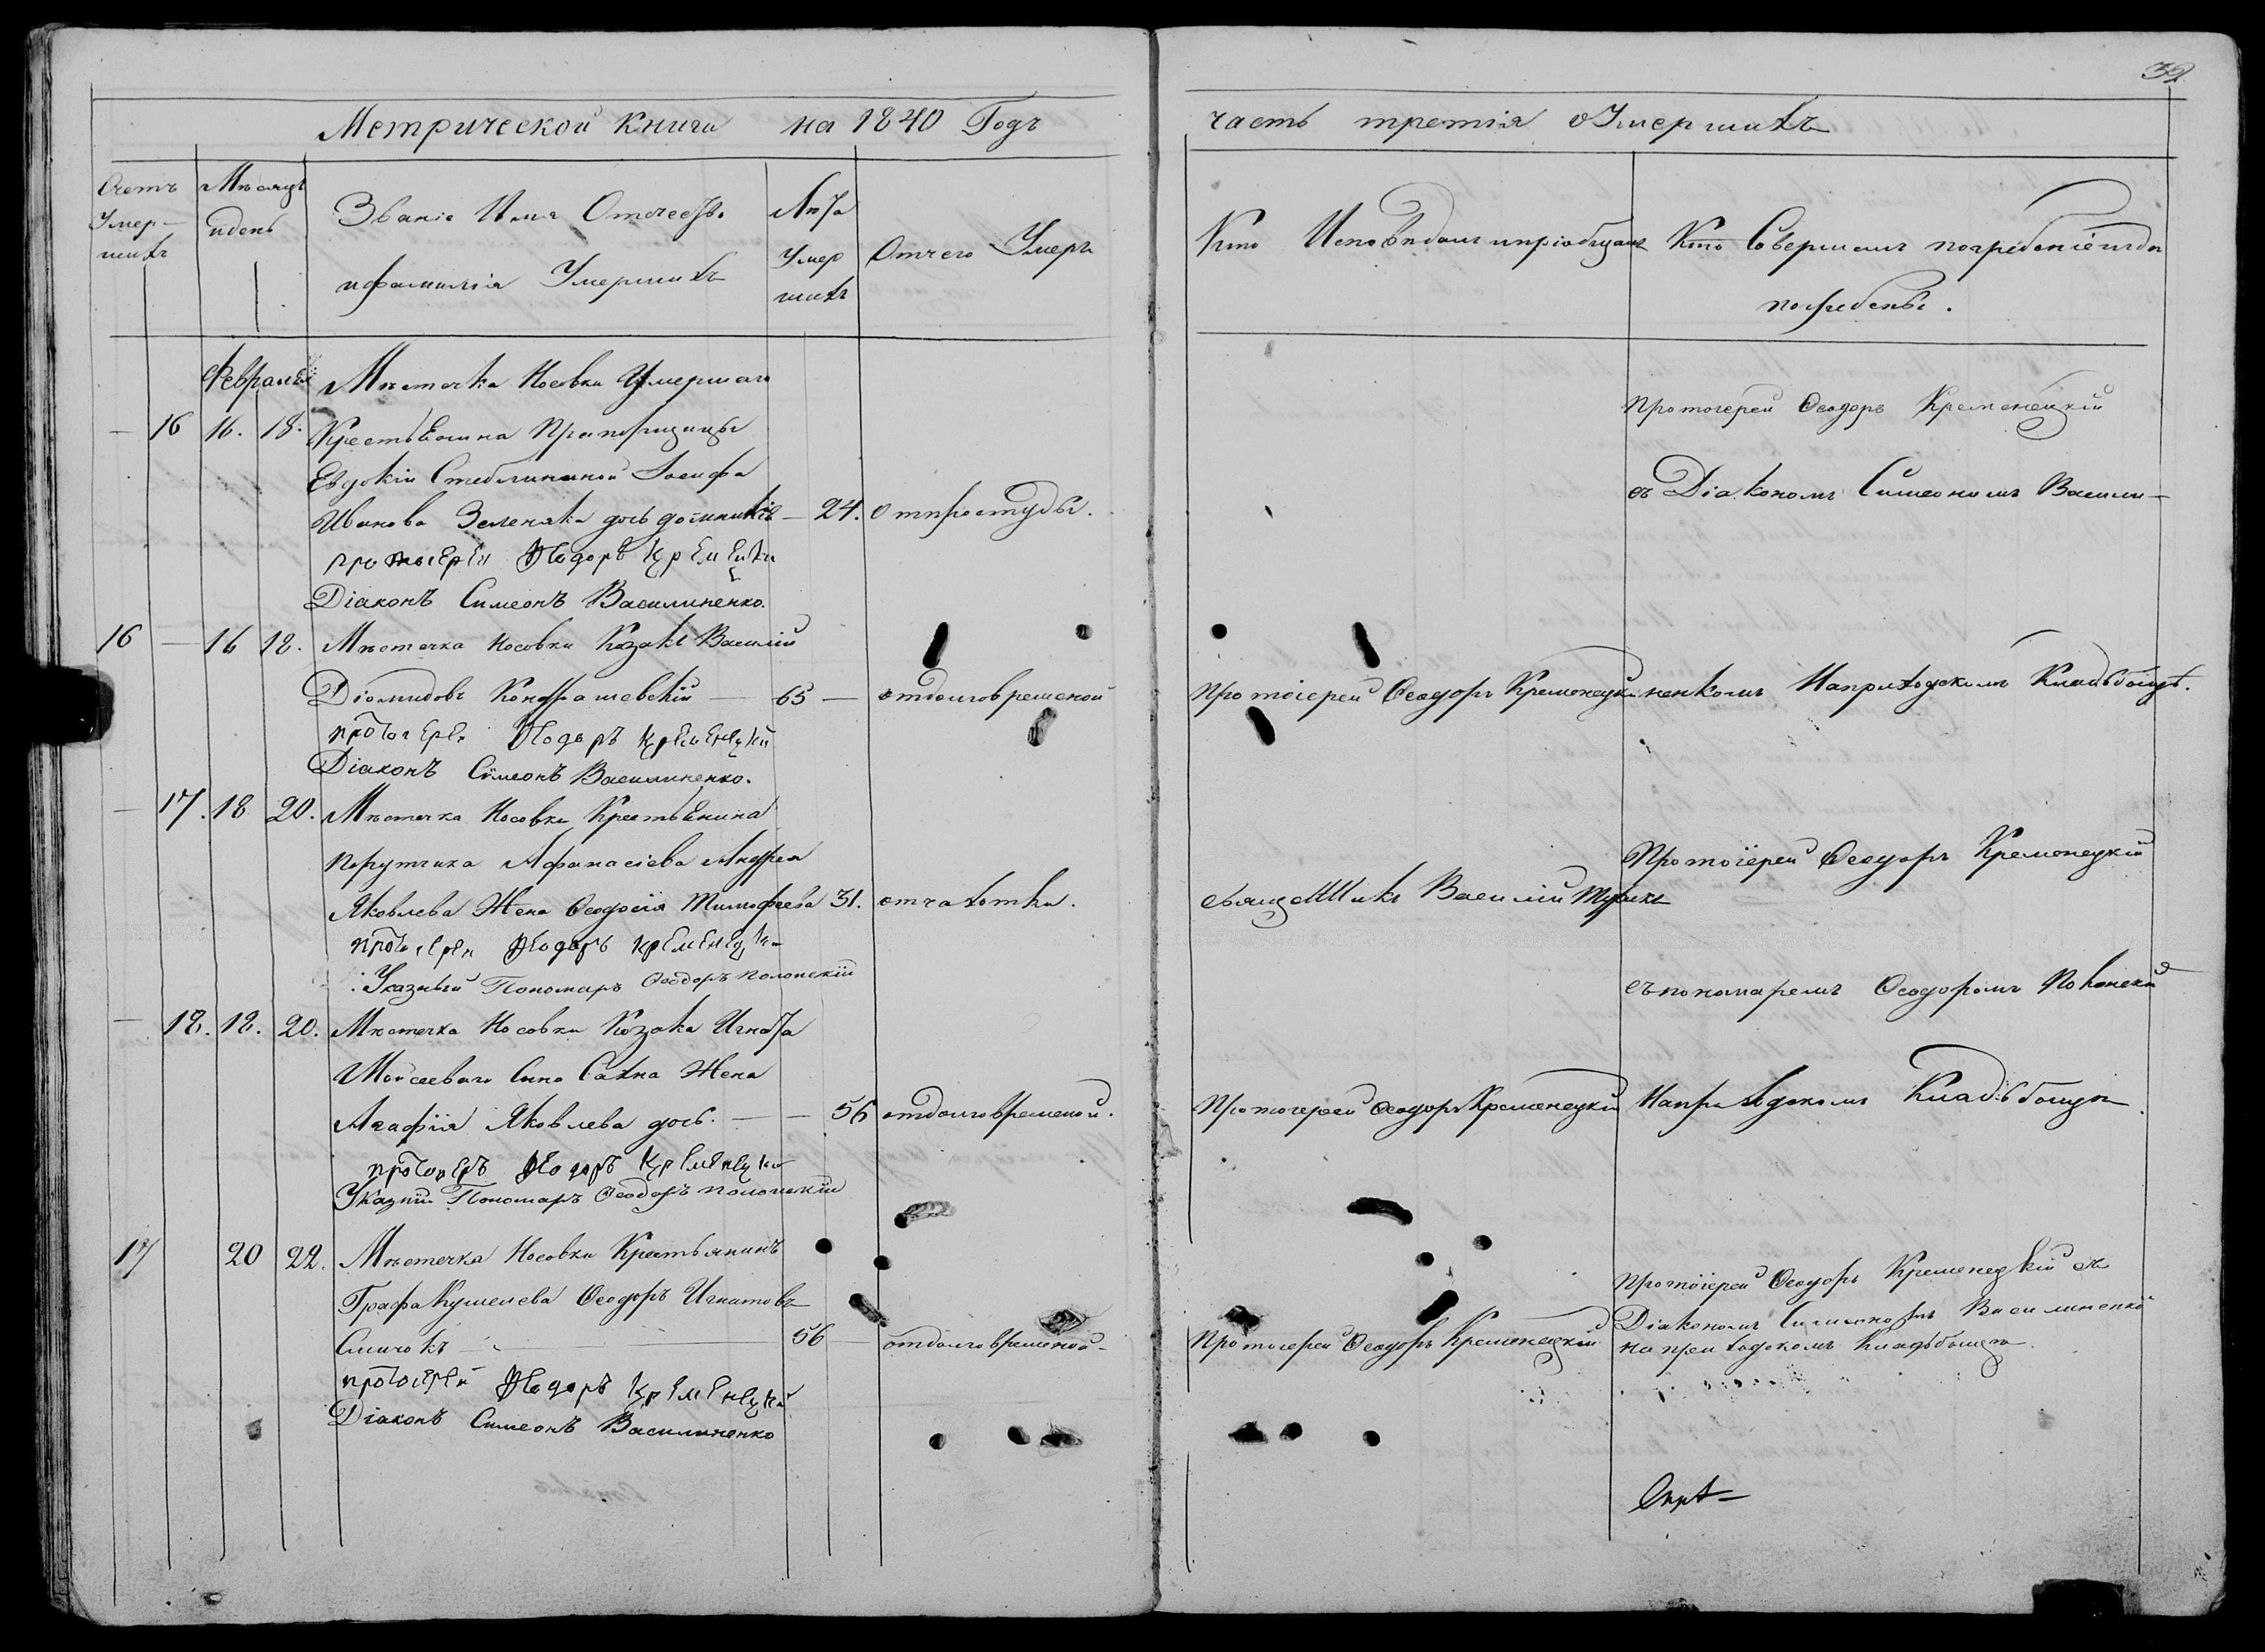 32
Метрической Книги на 1840 Годъ
часть третія о Умершихъ
Счетъ Умер-шихъ
Мѣсяцъ и день
Званіе Имя Отечество
и фамилія Умершихъ
Лѣта Умер шихъ
Отчего Умеръ
Кто Исповѣдалъ и пріобщалъ
Кто Совершалъ погребеніе и гдѣ
погребены.
Февраля
Мѣстечка Носовки Умершаго
— 16 16. 18. Крестьянина Прапорщицы
Евдокіи Стеблинской Іосифа
Иванова Зеленяка дочь — 24. От простуды.
протоіерей Ѳеодоръ Кременецки
Діаконъ Симеонъ Василиненко.
Протоіерей Ѳеодоръ Кременецкій
съ Діакономъ Симеономъ Васили-
16 — 16 18. Мѣстечка Носовки Козакъ Василій
Діомидовъ Кондрашевскій — 65 — отдолговременой
протоіерей Ѳеодоръ Кременецкій
Діаконъ Симеонъ Василиненко.
Протоіерей Ѳеодоръ Кременецкій
ненкомъ На приходскомъ Кладьбищѣ.
— 17. 18 20. Мѣстечка Носовки Крестьянина
Порутчика Афанасіева Андрея
Яковлева Жена Ѳеодосія Тимофеева 31. отчахотки.
протоіерей Ѳеодоръ Кременецки
Указный Пономаръ Ѳеодоръ Полонскій
священникъ Василій
Протоіерей Ѳеодоръ Кременецкій
съ пономаремъ Ѳеодоромъ
— 18. 18. 20. Мѣстечка Носовки Козака Игната
Мойсееваго Сына Сахна Жена
Агафія Яковлева дочь. — — 56 отдолговременой.
протоіеръ Ѳеодоръ Кременецки
Указній Пономаръ Ѳеодоръ Полонскій
Протоіерей Ѳеодоръ Кременецкій
На приходскомъ Кладьбищѣ.
17 20 22. Мѣстечка Носовки Крестьянинъ
Графа Кушелева Ѳеодоръ Игнатовъ
Смичокъ — 56 — отдолговременой-
протоіерей Ѳеодоръ Кременецкій
Діаконъ Симеонъ Василиненко
Протоіерей Ѳеодоръ Кременецкій
Протоіерей Ѳеодоръ Кременецкій съ
Діакономъ Симеономъ Василиненко
на приходскомъ Кладьбищѣ.